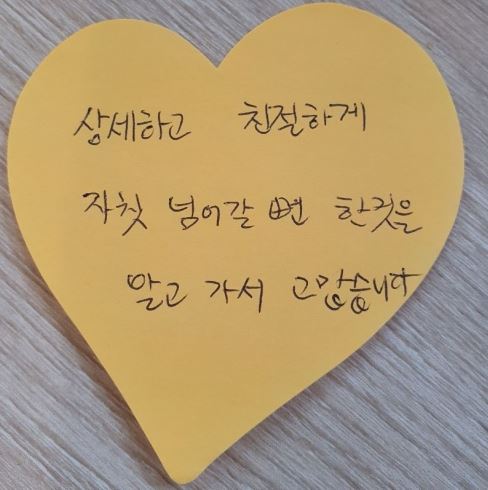 상세하고 친절하게
자칫 넘어갈 뻔 한것을
알고 가서 고맙습니다